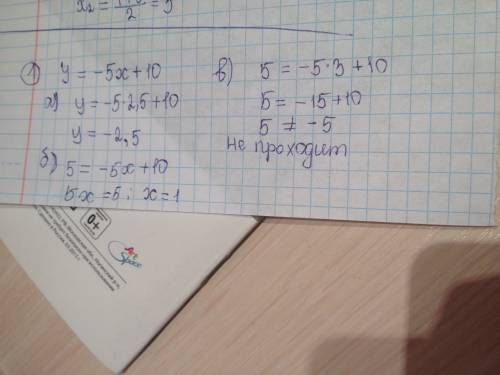 x₂ = 2 = 5
1) y = -5x+10
а) y = -5·2,5+10
y = -2,5
б) 5 = -5x+10
5x = 5; x = 1
в) 5 = -5·3+10
5 = -15+10
5 ≠ -5
не проходит
0+
Art
Space